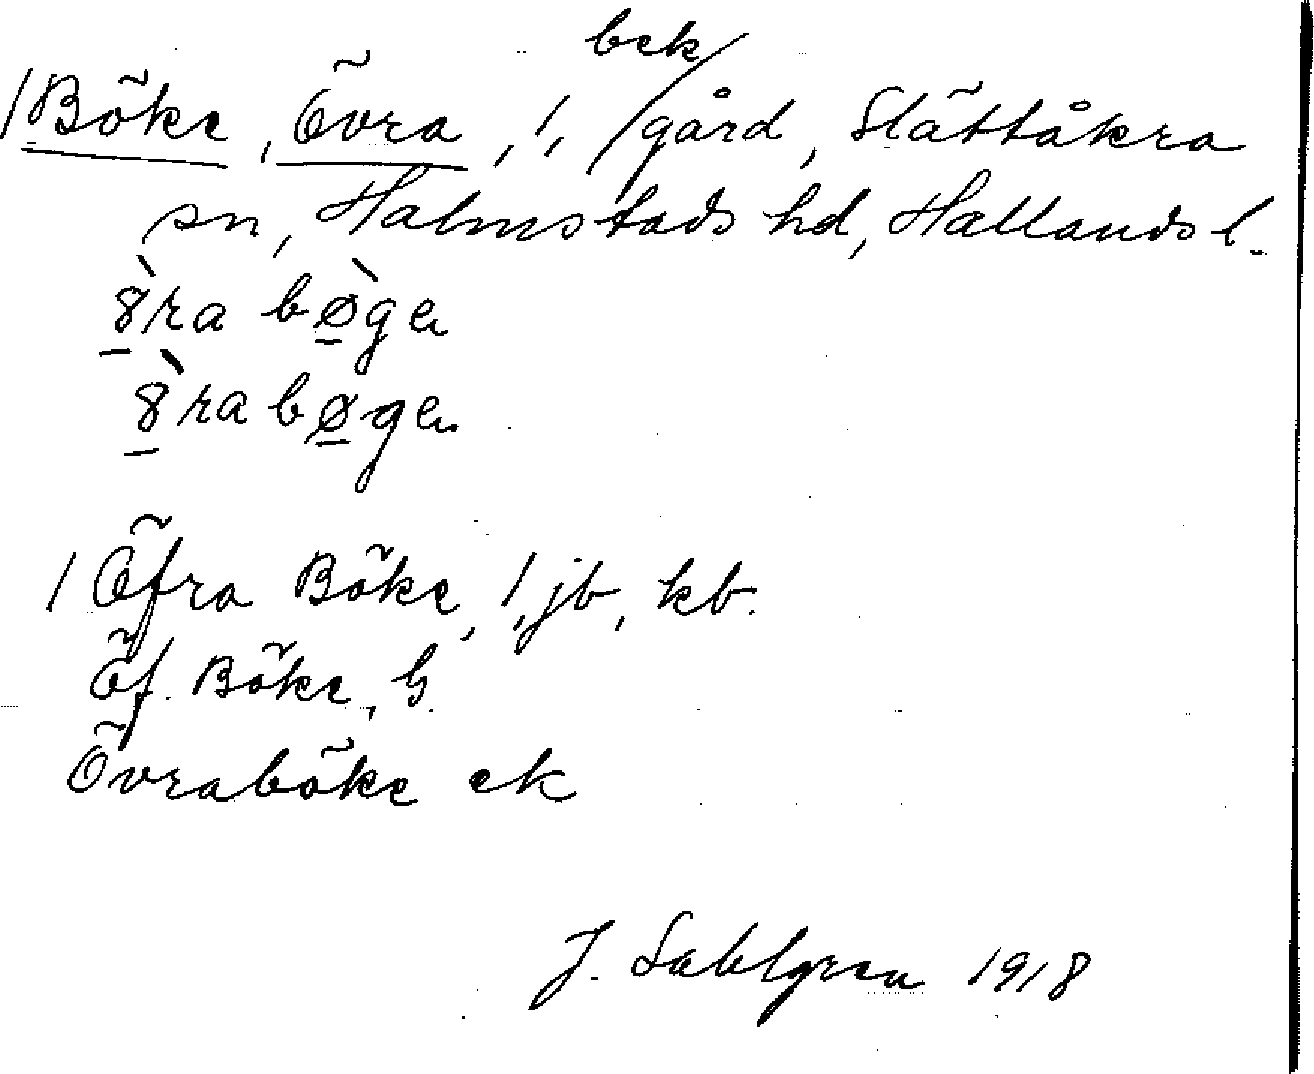 bek
/Böke, Övra, 1, /gård, Slättåkra
sn, Halmstads hd, Hallands l.
8̀ra bø̀ge
8̀ra bøge
/ Öfra Böke, 1, jb, kb.
Öf. Böke, G.
Övraböke ek
J. Sahlgren 1918